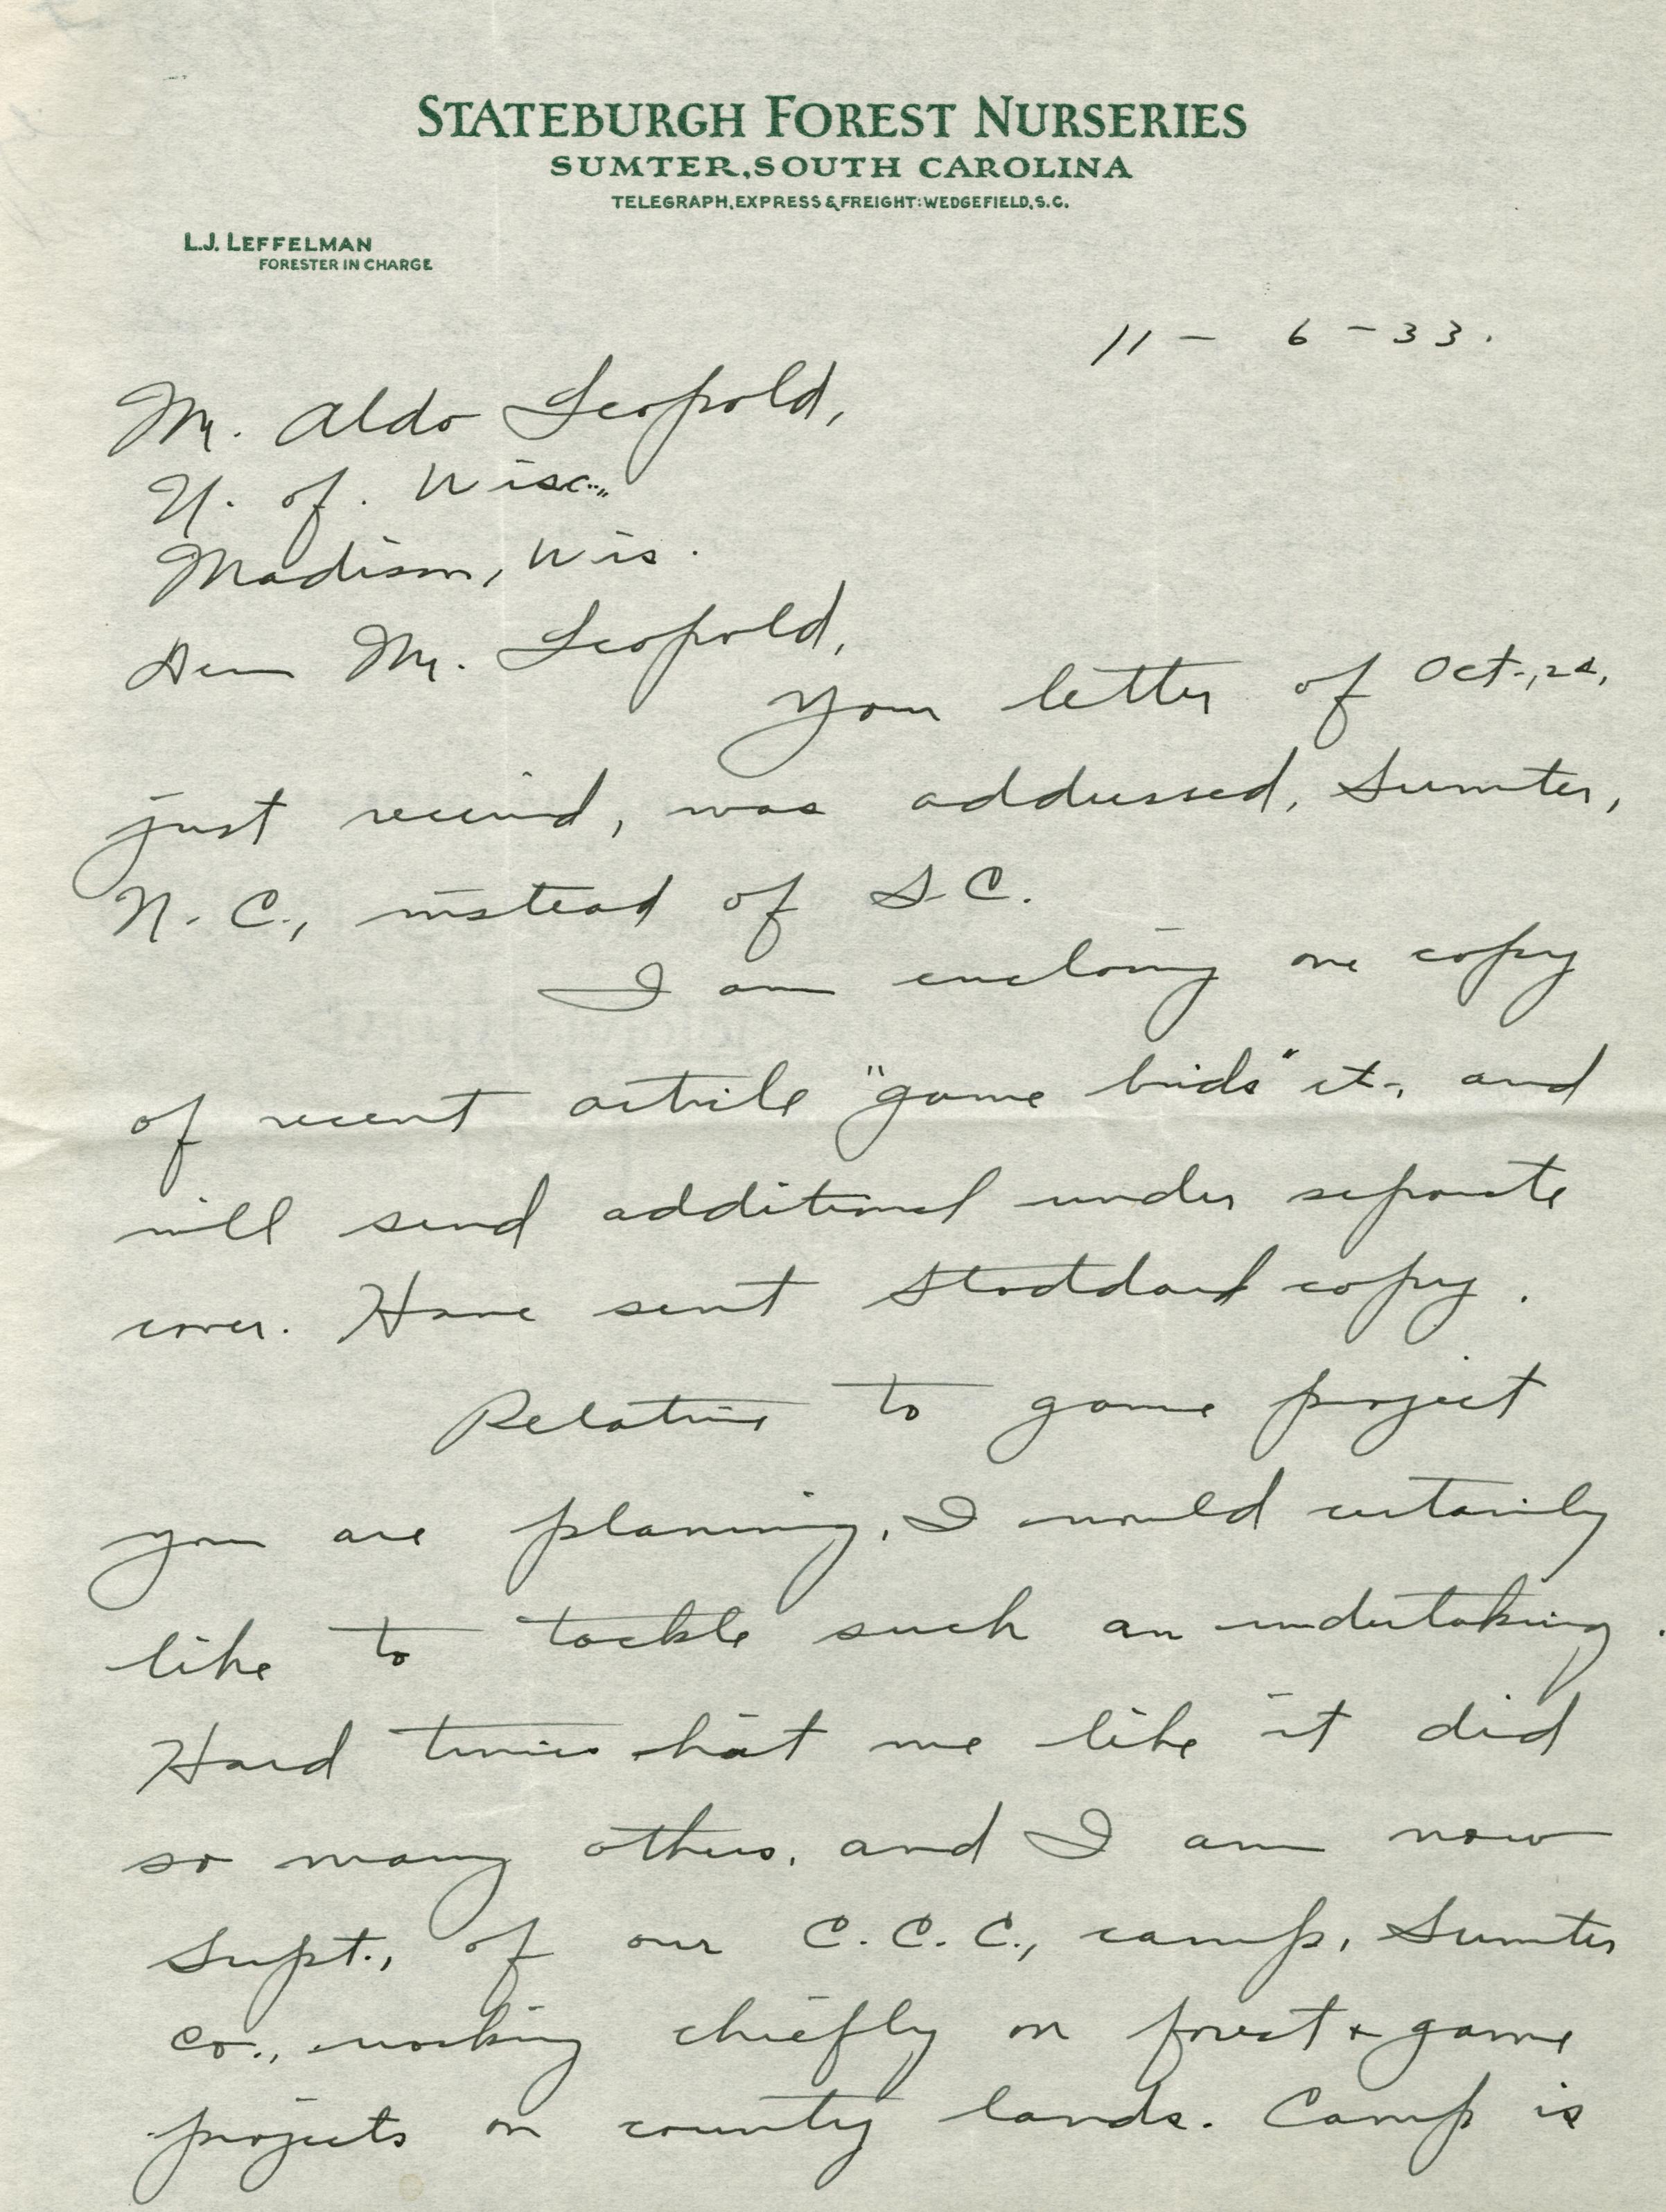 STATEBURGH FOREST NURSERIES
SUMTER, SOUTH CAROLINA
TELEGRAPH, EXPRESS & FREIGHT: WEDGEFIELD, S.C.
L.J. LEFFELMAN
FORESTER IN CHARGE
11 - 6 - 33.
Mr. Aldo Leopold,
U. of. Wisc.,
Madison, Wis.
Dear Mr. Leopold,
Your letter of Oct.,
just received, was addressed, Sumter,
N. C., instead of S. C.
I am enclosing one copy
of recent article "game birds" etc., and
will send additional under separate
cover. Have sent Stoddard copy.
Relative to game project
you are planning, I would certainly
like to tackle such an undertaking.
Hard times hit me like it did
so many others, and I am now
Supt., of our C.C.C., camp, Sumter
Co., working chiefly on forest & game
projects on county lands. Camp is